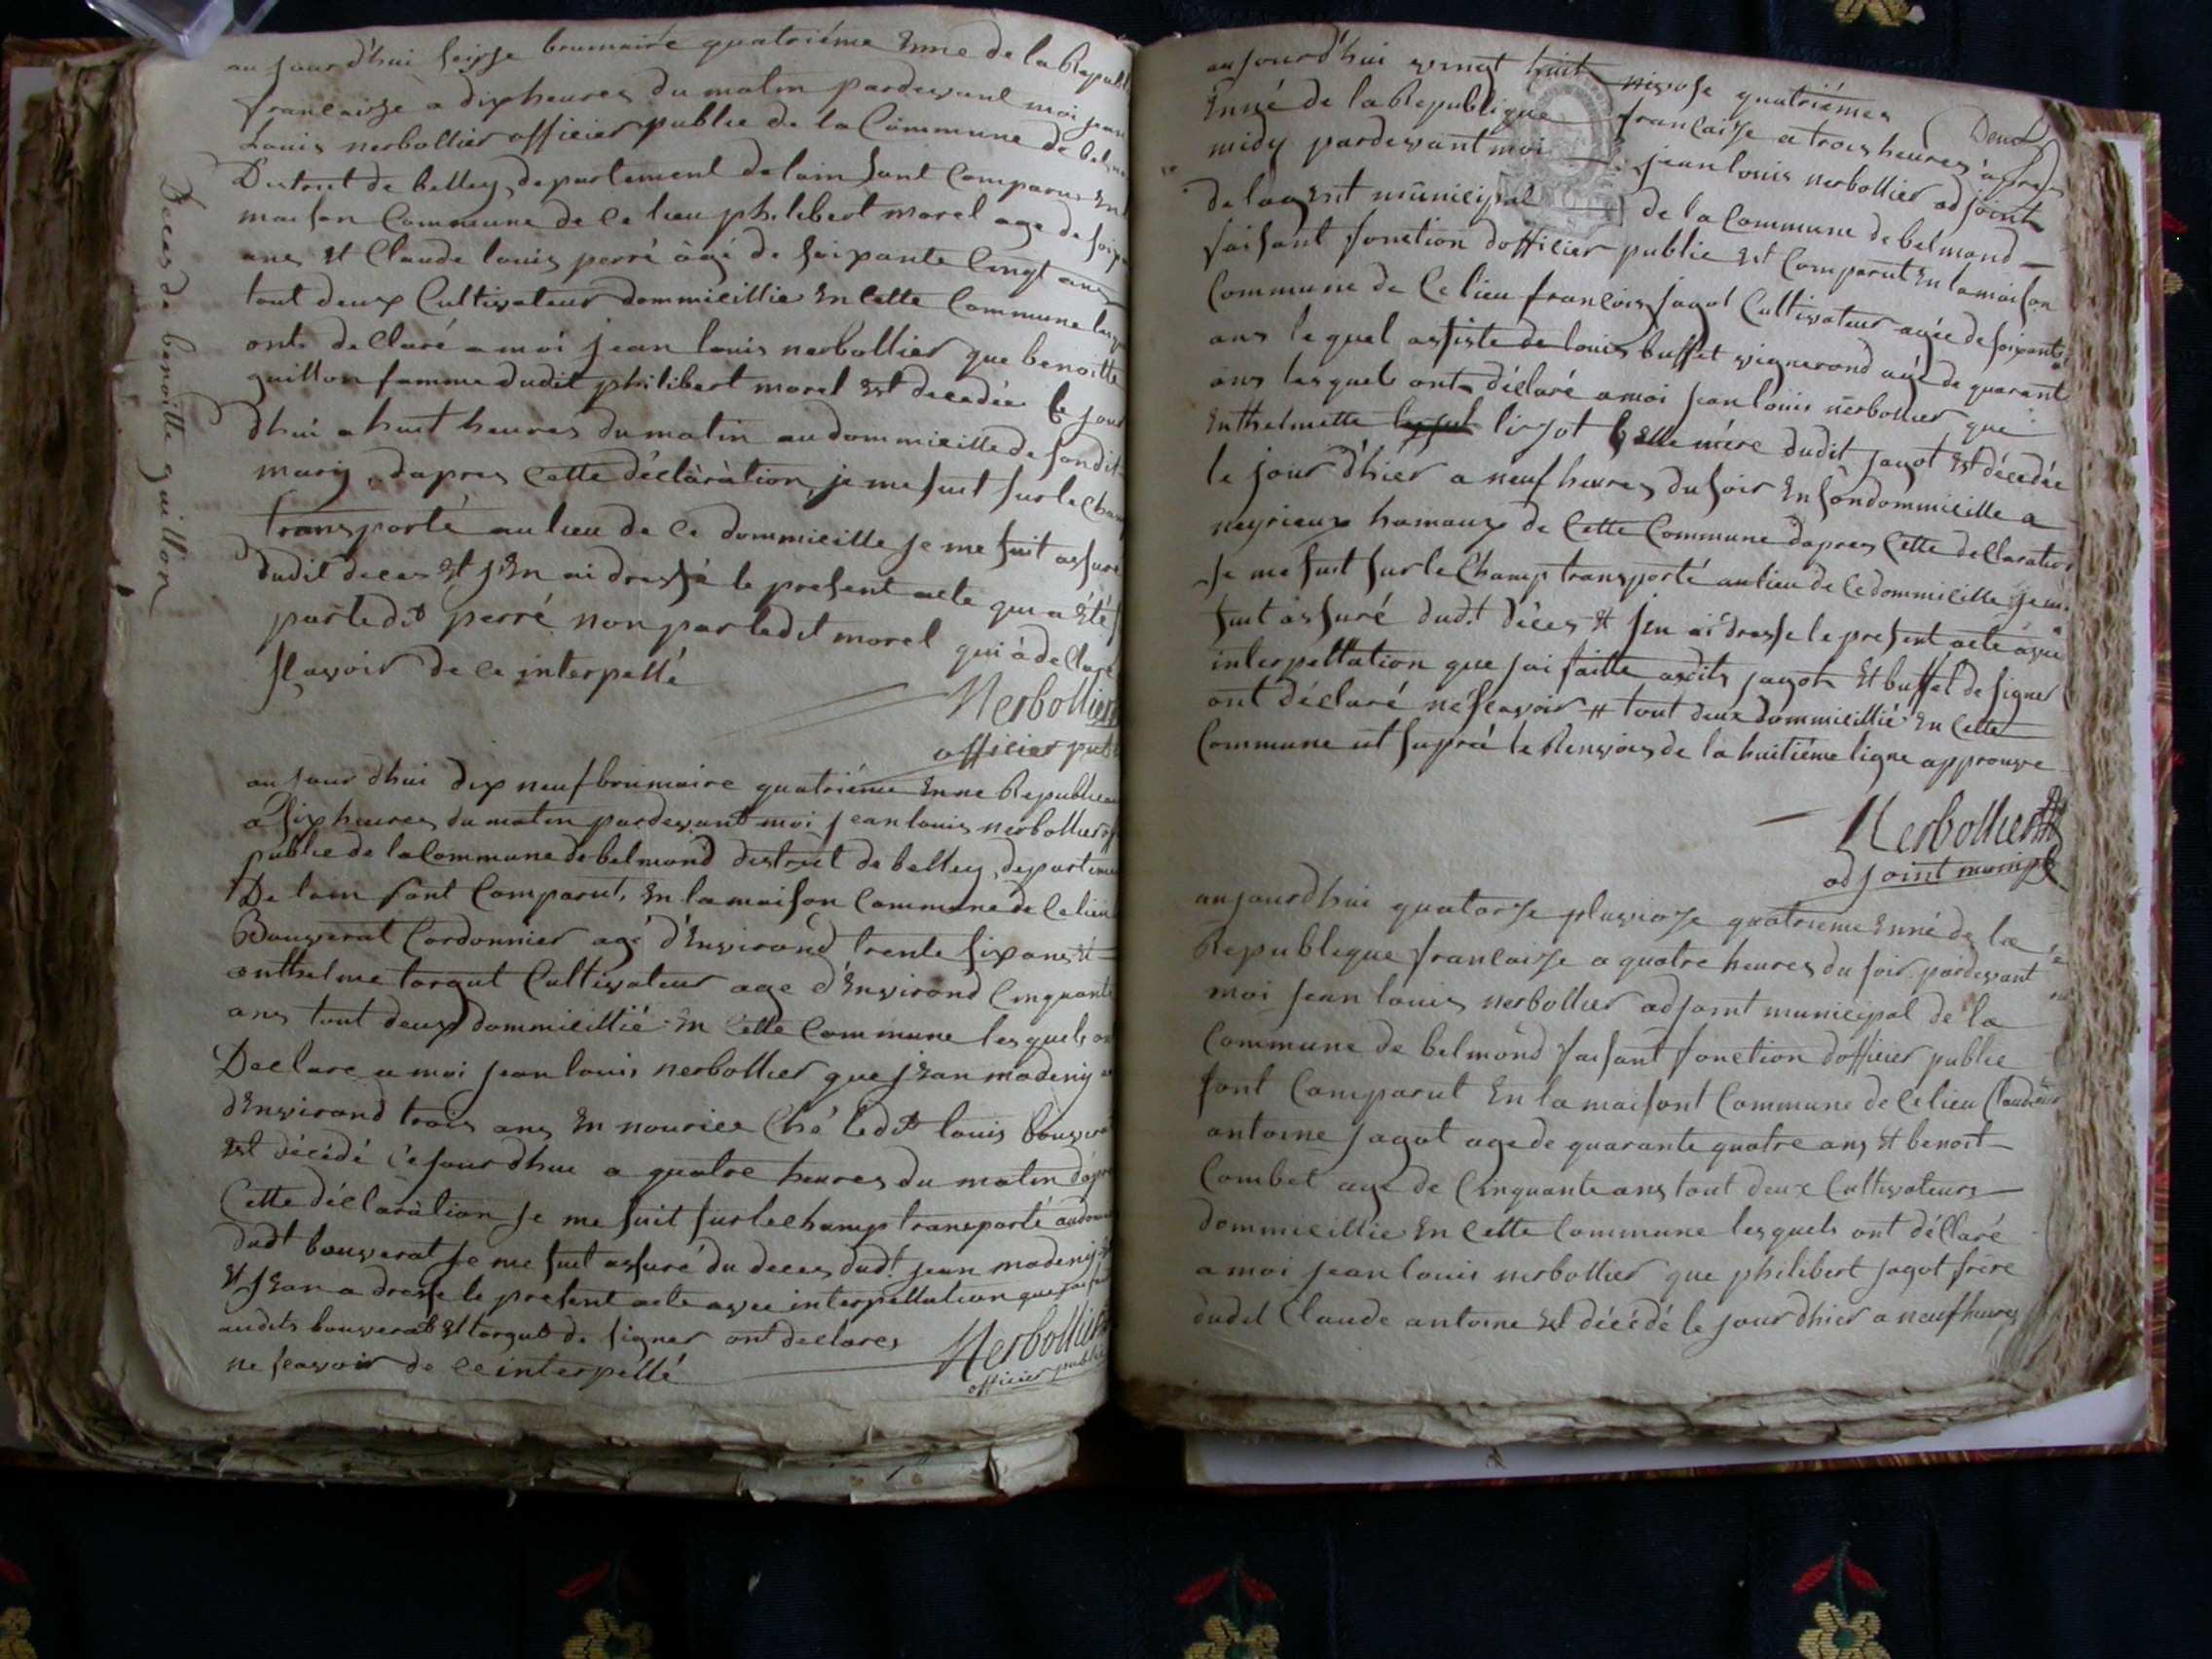 au jourd'hui seizze brumaire quatriéme Enne de la Republ
francaisse a dix heures du matin pardevant moi jean
Louis nerbollier officier public de la Commune de bel
District de belley, departement de lain sont Comparus En
maison Commune de Ce lieu philibert morel age de soix
ans Et Claude louis perré âgé de soixante Cinqt ans
tout deux Cultivateur dommicillie En Cette Commune les
onts declaré a moi jean louis nerbollier que benoitte
guillon famme dudit philibert morel Est decedée le jour
dhui a huit heures du matin au dommicille de sondit
mary, dapres Cette déclaration, je me suit sur le Cham
transporté au lieu de Ce dommicille je me suit assuré
dudit deces Et j'En ai dressé le present acte qui a Été
par ledit perré non par ledit morel qui à declaré
scavoir de Ce interpellé
Nerbollier
officier publ
Deces de benoitte guillon
au jour dhui dix neuf brumaire quatriéme Enne Republicai
a six heures du matin pardevant moi jean louis nerbollier off
public de la Commune de belmond district de belley, departeme
De lain sont Comparut, En la maison Commune de Ce lieu
Bouverat Cordonnier agé d'Environd trente six ans Et
anthelme torgut Cultivateur age d'Environd Cinquante
ans tout deux dommicillié En Cette Commune lesquels on
Declare a moi jean louis nerbollier que jean madeny
d'Environd trois ans En nourice Ché ledit louis bouverat
Est décédé Ce jourdhui a quatre heures du matin dapre
Cette déclaration je me suit sur le champ transporté au dom
dudt bouverat je me suit assuré du deces dudt jean madeny
Et j'En a dressé le present acte avec interpellation que jai fait
audits bouverat Et torgut de signer ont declares
ne scavoir de Ce interpellé
Nerbollier
officier public
aujourd'hui vingt huit nivose quatriémes
Enné de la Republique francaisse a trois heures apres
midy pardevant moi jean louis nerbollier adjoint
de lagent municipal de la Commune de belmond
faisant fonction dofficier public Est Comparut En la maison
Commune de Ce lieu francois jagot Cultivateur agée de soixante
ans lequel assiste de louis buffet vignerond agé de quarante
ans lesquels onts déclaré a moi jean louis nerbollier que
Enthelmette livjot belle mére dudit jagot Est décédée
le jour d'hier a neuf heures du soir En son dommicille a
neyrieux hamaux de Cette Commune dapres Cette declaration
je me suit sur le Champ transporté au lieu de Ce dommicille je me
suit assuré dudt déces Et jen ai dresse le present acte avec
interpellation que jai faitte audits jagot Et buffet de signer
ont déclaré ne scavoir # tout deux dommicillié En Cette
Commune ut supra le Renvois de la huitiéme ligne approuve
Nerbollier
adjoint municpl
aujourdhui quatorze pluviose quatrieme Enné de la
Republique francaisse a quatre heures du soir pardevant
moi jean louis nerbollier adjoint municipal de la
Commune de belmond faisant fonction dofficier public
sont Comparut En la maisont Commune de Ce lieu Claude
antoine jagot age de quarante quatre ans Et benoit
Combet age de Cinquante ans tout deux Cultivateurs
dommicillie En Cette Commune lesquels ont déclaré
a moi jean louis nerbollier que philibert jagot frere
dudit Claude antoine Est décédé le jour dhier a neuf heures